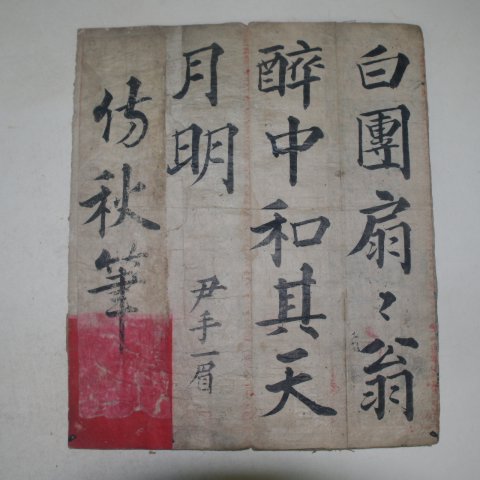 白團扇〻翁
醉中和其天
月明
尹手一眉
仿秋筆